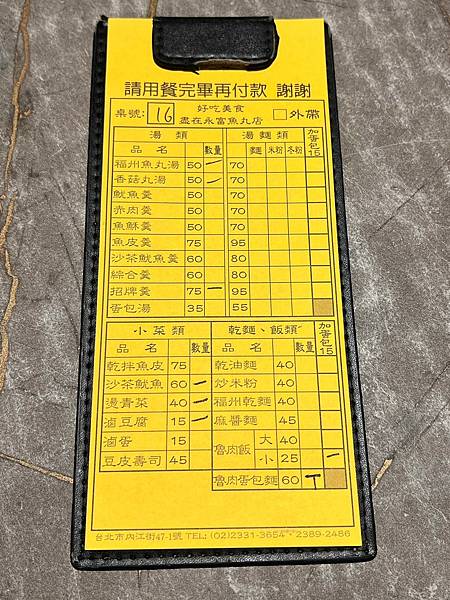 請用餐完畢再付款 謝謝
桌號: 16 好吃美食 盡在永富魚丸店 外帶
湯類 湯麵類 加蛋包15
品名 數量 麵 米粉 冬粉
福州魚丸湯 50 一 70
香菇丸湯 50 一 70
魷魚羹 50 70
赤肉羹 50 70
魚酥羹 50 70
魚皮羹 75 95
沙茶魷魚羹 60 80
綜合羹 60 80
招牌羹 75 一 95
蛋包湯 35 55
小菜類 乾麵、飯類 加蛋包15
品名 數量 品名 數量
乾拌魚皮 75 乾油麵 40
沙茶魷魚 60 一 炒米粉 40
燙青菜 40 一 福州乾麵 40
滷豆腐 15 一 麻醬麵 45
滷蛋 15 魯肉飯 大 40
豆皮壽司 45 小 25 一
魯肉蛋包麵 60 T
台北市內江街47-1號 TEL: (02)2331-3654・2389-2486